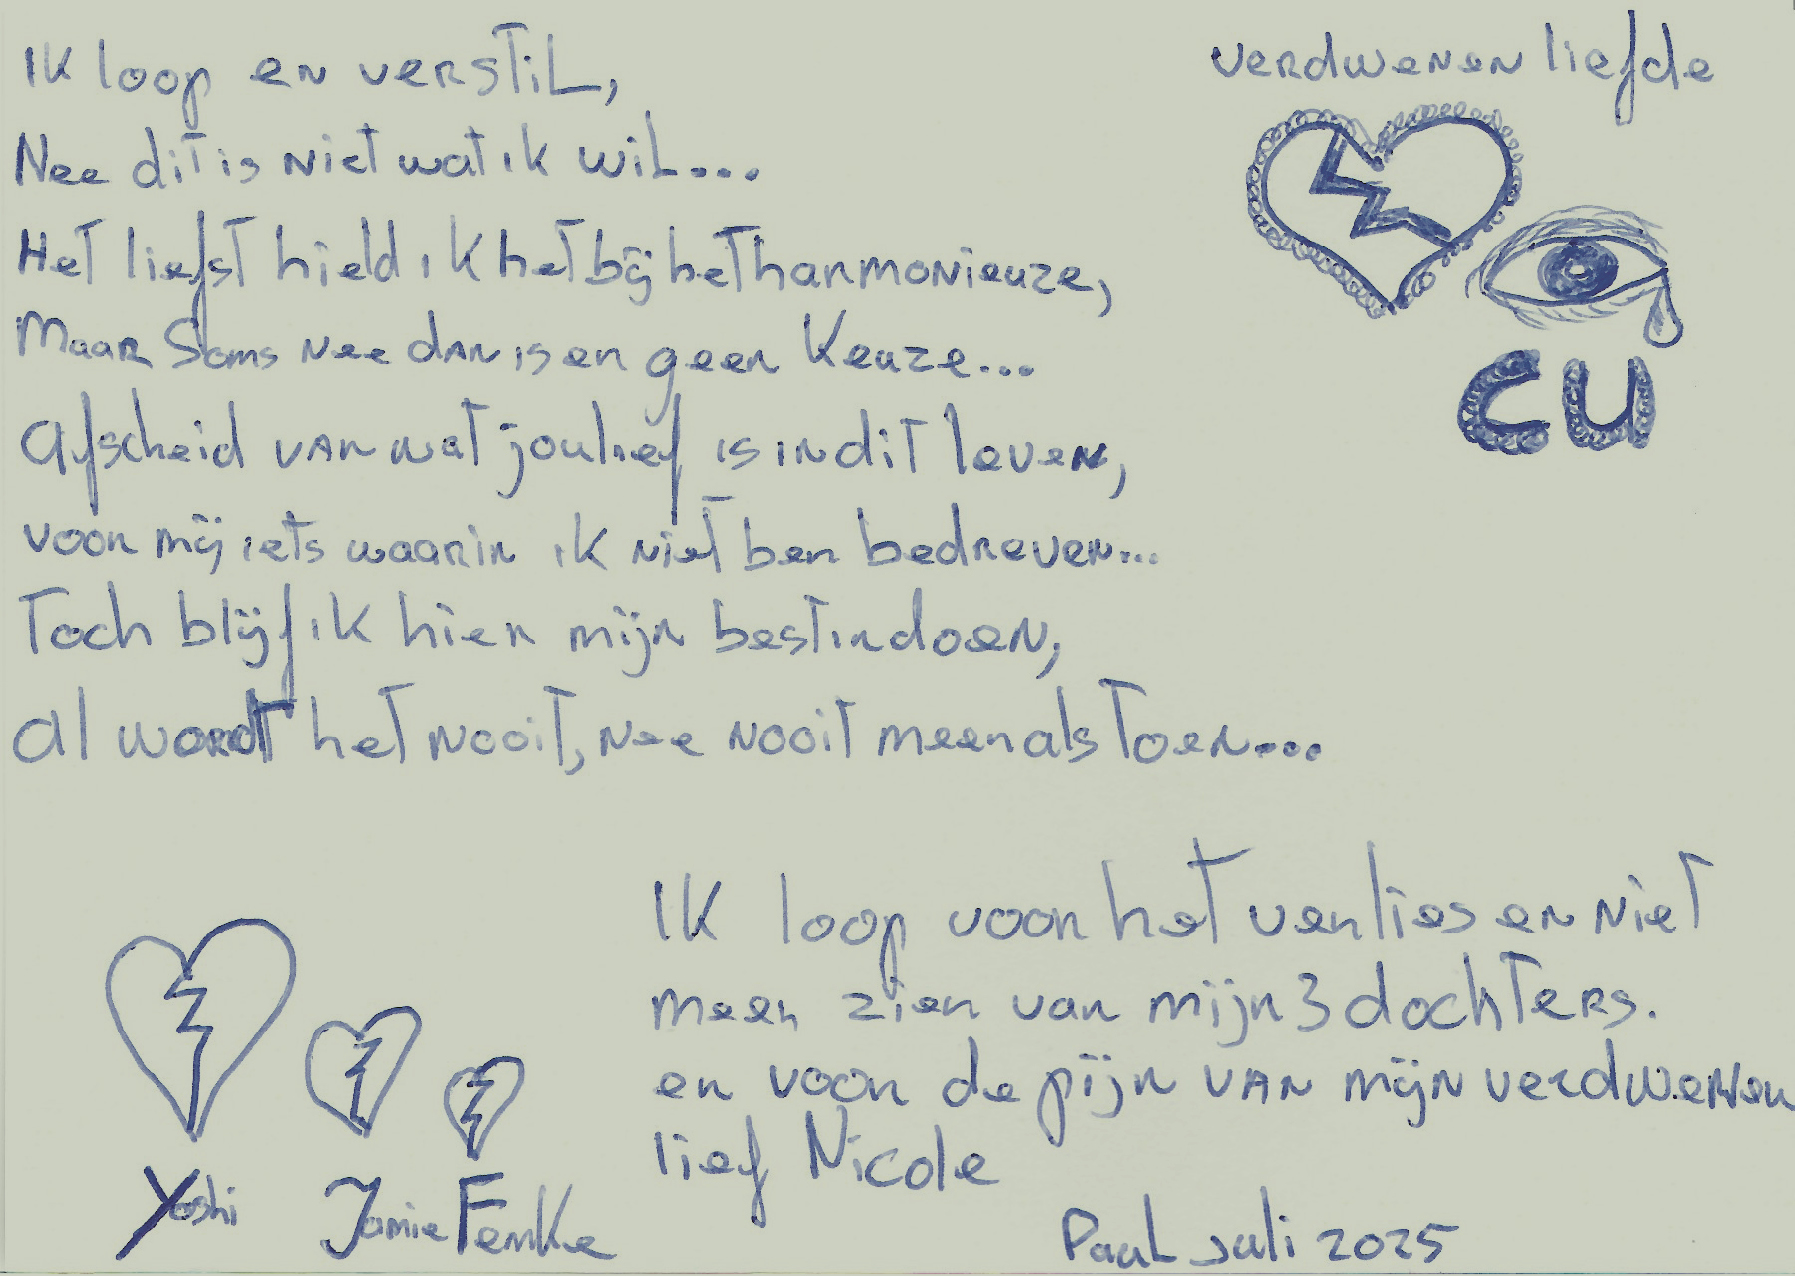 verdwenen liefde
Ik loop en verstil,
Nee dit is niet wat ik wil...
Het liefst hield ik het bij het harmonieuze,
Maar Soms nee dan is er geen Keuze...
Afscheid van wat jou lief is in dit leven,
voor mij iets waarin ik niet ben bedreven...
Toch blijf ik hier mijn best in doen,
al wordt het nooit, nee nooit meer als toen...
CU
Ik loop voor het verlies en niet
meer zien van mijn 3 dochters.
en voor de pijn van mijn verdwenen
lief Nicole
Yoshi Jamie Femke
Paul juli 2025